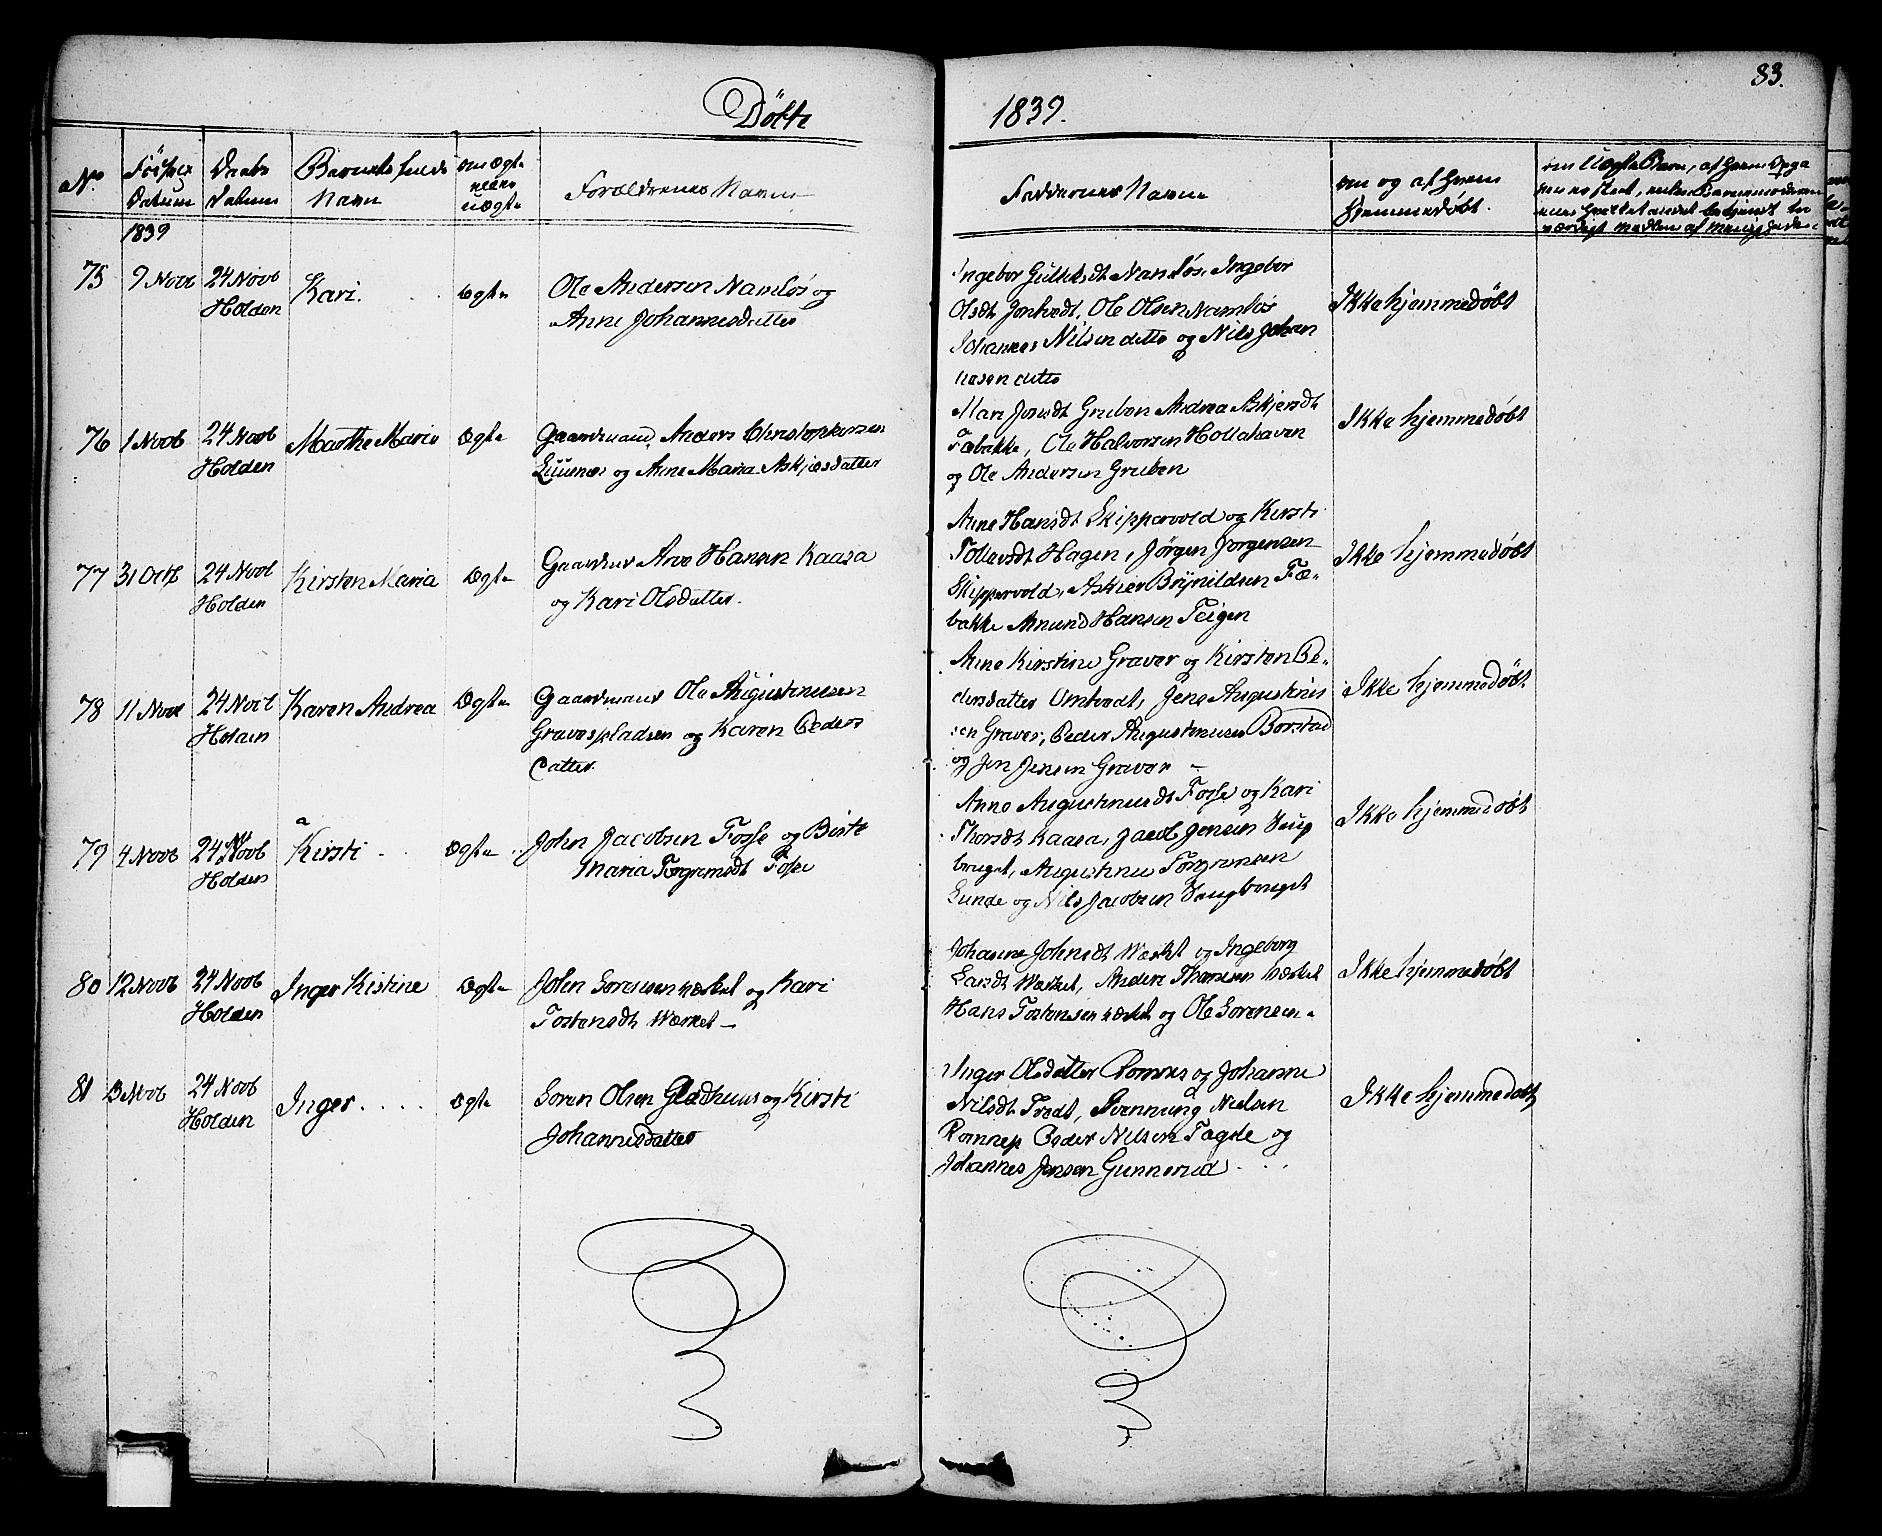 83.
Döbte
1839.
No.
Födsels
Datum
Daabs
Datum
Barnets fulde
Navn
om Ægte
eller
uægte
Forældrenes Navne
Faddernes Navne
om og af hvem
hjemmedøbt.
om Uægte Barn, af hvem Opga
1839
75 9 Novb 24 Novb Kari. Ægte Ole Andersen Namløs og
Holden Anne Johannesdatter
Ingebor Gulliksdt Namløs, Ingebor
Olsdt Jontvedt, Ole Olsen Namløs
Johannes Nilsen ditto og Nils Johan
nesen ditto
Ikke hjemmedøbt
76 1 Novb 24 Novb Marthe Marie Ægte Gaardmand Anders Christophersen
Holden og Anne Maria Askjersdatter
Mari Jonsdt Gruben Andrea Askjersdt
Fæbakke, Ole Halvorsen Hollahaven
og Ole Andersen Gruben
Ikke hjemmedøbt
77 31 Octb 24 Novb Kirsten Maria Ægte Gaardm Arve Hansen Kaasa
Holden og Kari Olsdatter.
Anne Hansdt Skippervold og Kirsti
Tollevsdt Hagen, Jørgen Jørgensen
Skippervold, Askier Brynildsen Fæ-
bakke Amund Hansen Teigen
Ikke hjemmedøbt
78 11 Novb 24 Novb Karen Andrea Ægte Gaardmand Ole Augustinusen
Holden Graverpladsen og Karen Peders
datter.
Anne Kirstine Graver og Kirsten Pe-
dersdatter Omtvedt, Jens Augustinus
sen Graver, Peder Augustinusen Borstad
og Jen Jensen Graver
Ikke hjemmedøbt
79 4 Novb 24 Novb Kirsti Ægte John Jacobsen Fosse og Birte
Holden Maria Torgrimsdt Fosse
Anne Augustinusdt Fosse og Kari
Thorsdt Kaasa, Jacob Jensen Saug
bruget, Augustinus Torgrimsen
Lunde og Nils Jacobsen Saugbruget
Ikke hjemmedøbt
80 12 Novb 24 Novb Inger Kistine Ægte John Sorensen Værket og Kari
Holden Tostensdt Værket
Johanne Johnsdt Værket og Ingeborg
Larsdt Værket, Anders Thomesen Værket
Hans Tostensen Værket og Ole Sorensen
Ikke hjemmedøbt
81 13 Novb 24 Novb Inger. Ægte Soren Olsen Gladhuus og Kirsti
Holden Johannesdatter
Inger Olsdatter Romnes og Johanne
Nilsdt Tredt, Svennung Nielsen
Romnes Peder Nilsen Tægde og
Johannes Jensen Gunnerud
Ikke hjemmedøbt